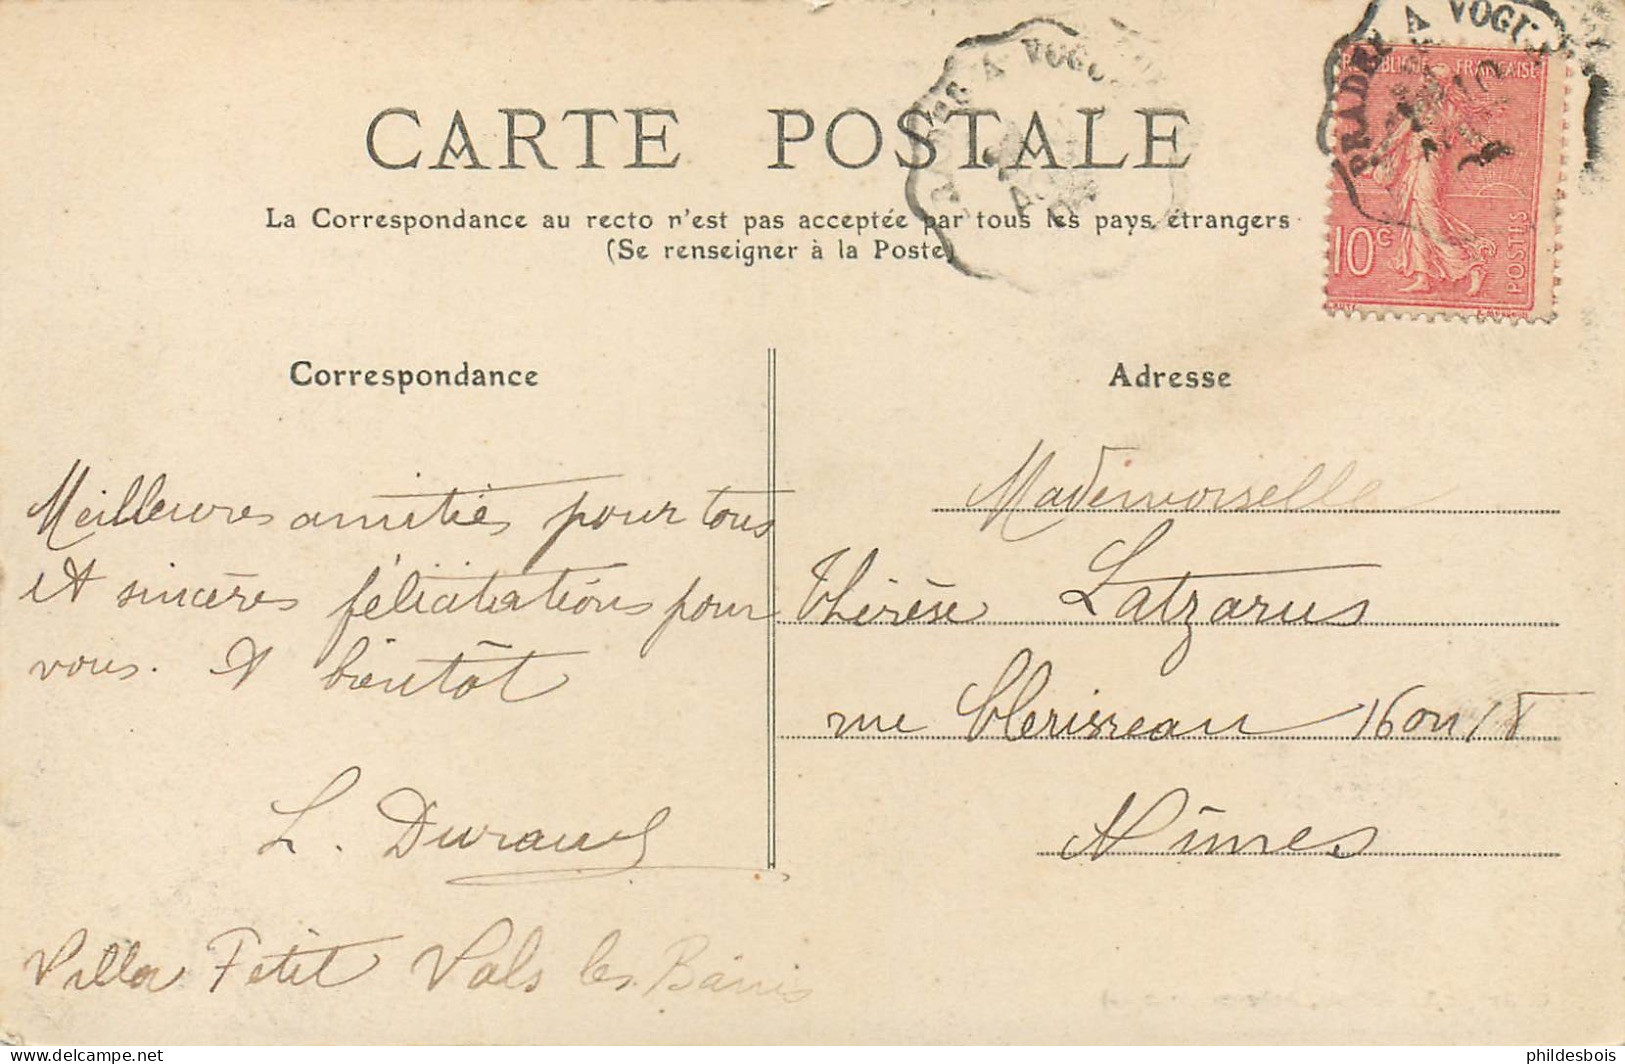 CARTE POSTALE
La Correspondance au recto n'est pas acceptée par tous les pays étrangers
(Se renseigner à la Poste)
PRADES A VOGUE
PRADES A VOGUE
REPUBLIQUE FRANÇAISE
10c
POSTES
Correspondance
Meilleures amitiés pour tous
et sincères félicitations pour
vous. A bientôt
L. Durand
Villa Petit Vals les Bains
Adresse
Mademoiselle
Thérèse Latzarus
rue Clerisseau 16 ou 18
Nîmes
phildesbois